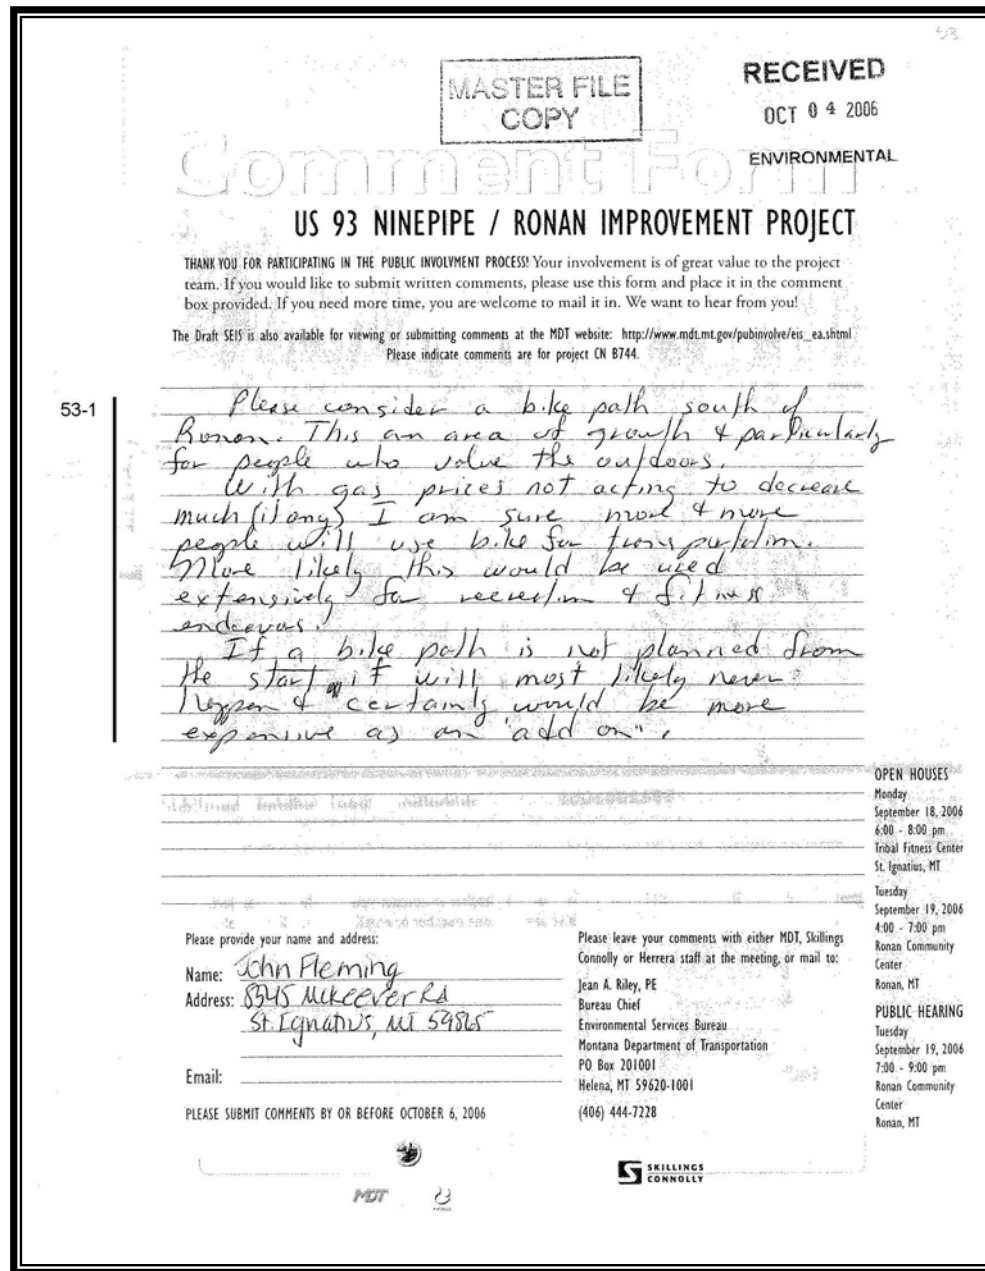 53
MASTER FILE
COPY
RECEIVED
OCT 04 2006
ENVIRONMENTAL
Comment Form
US 93 NINEPIPE / RONAN IMPROVEMENT PROJECT
THANK YOU FOR PARTICIPATING IN THE PUBLIC INVOLVMENT PROCESS! Your involvement is of great value to the project
team. If you would like to submit written comments, please use this form and place it in the comment
box provided. If you need more time, you are welcome to mail it in. We want to hear from you!
The Draft SEIS is also available for viewing or submitting comments at the MDT website: http://www.mdt.mt.gov/pubinvolve/eis_ea.shtml
Please indicate comments are for project CN B744.
53-1
Please consider a bike path south of
Ronan. This an area of growth & particularly
for people who value the outdoors.
With gas prices not acting to decrease
much (if any) I am sure more & more
people will use bike for transportation.
More likely this would be used
extensively for recreation & fitness
endeavors.
If a bike path is not planned from
the start, it will most likely never
happen & certainly would be more
expensive as an "add on".
OPEN HOUSES
Monday
September 18, 2006
6:00 - 8:00 pm
Tribal Fitness Center
St. Ignatius, MT
Tuesday
September 19, 2006
4:00 - 7:00 pm
Ronan Community
Center
Ronan, MT
PUBLIC HEARING
Tuesday
September 19, 2006
7:00 - 9:00 pm
Ronan Community
Center
Ronan, MT
Please provide your name and address:
Name: John Fleming
Address: 8345 McKeever Rd
St. Ignatius, MT 59865
Email:
PLEASE SUBMIT COMMENTS BY OR BEFORE OCTOBER 6, 2006
Please leave your comments with either MDT, Skillings
Connolly or Herrera staff at the meeting, or mail to:
Jean A. Riley, PE
Bureau Chief
Environmental Services Bureau
Montana Department of Transportation
PO Box 201001
Helena, MT 59620-1001
(406) 444-7228
MDT
SKILLINGS
CONNOLLY